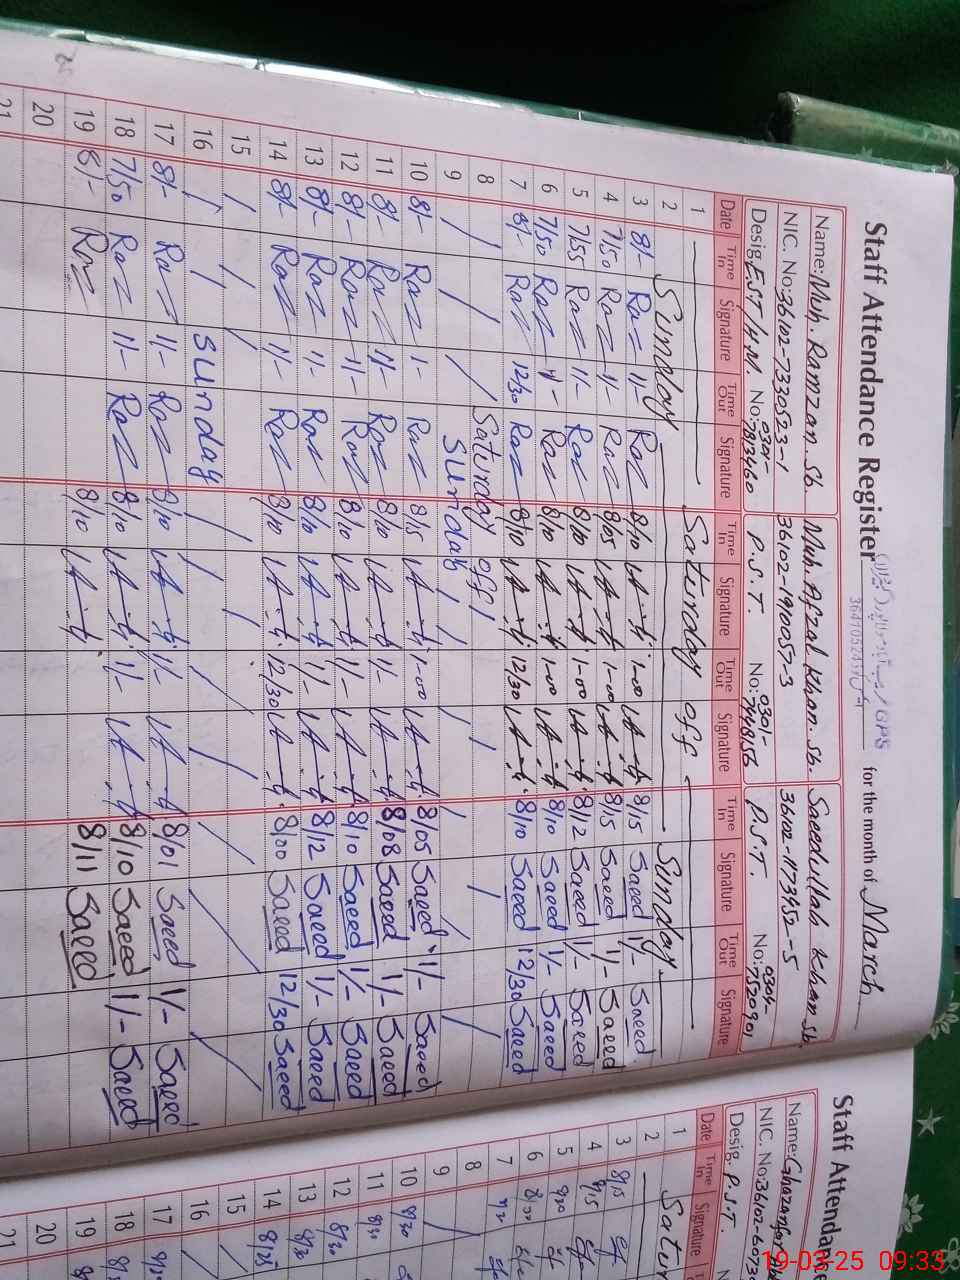 Staff Attendance Register for the month of March
Name: Muh. Ramzan. Sb. Muh. Afzal. Khan. Sb. Saeedullah Khan Sb.
NIC. No: 36102-7330523-1 36102-1960057-3 36102-1173952-5
Desig. EST/H.M. No: 0301-7813460 P.S.T. No: 0301-7448156 P.S.T. No: 0304-7520901
Date Time In Signature Time Out Signature Time In Signature Time Out Signature Time In Signature Time Out Signature
1 Saturday off
2 Sunday Sunday
3 8/- Raz 1/- Raz 8/10 1-00 8/15 Saeed 1/- Saeed
4 7/50 Raz 1/- Raz 8/05 1-00 8/15 Saeed 1/- Saeed
5 7/55 Raz 1/- Raz 8/10 1-00 8/12 Saeed 1/- Saeed
6 7/50 Raz 1/- Raz 8/10 1-00 8/10 Saeed 1/- Saeed
7 8/- Raz 12/30 Raz 8/10 12/30 8/10 Saeed 12/30 Saeed
8 Saturday off
9 Sunday
10 8/- Raz 1- Raz 8/15 1-00 8/05 Saeed 1/- Saeed
11 8/- Raz 1/- Raz 8/10 1/- 8/08 Saeed 1/- Saeed
12 8/- Raz 1/- Raz 8/10 1/- 8/10 Saeed 1/- Saeed
13 8/- Raz 1/- Raz 8/10 1/- 8/12 Saeed 1/- Saeed
14 8/- Raz 1/- Raz 8/10 12/30 8/00 Saeed 12/30 Saeed
15
16 Sunday
17 8/- Raz 1/- Raz 8/10 1/- 8/01 Saeed 1/- Saeed
18 7/50 Raz 1/- Raz 8/10 1/- 8/10 Saeed 1/- Saeed
19 8/- Raz 8/10 8/11 Saeed
20
21
Staff Attendan
Name: Ghazanfar
NIC. No: 36102-
Desig. P.S.T.
Date Time In Signature
1 Satur
2
3 8/15
4 8/15
5 8/20
6 8/00
7
8
9
10 8/20
11 8/30
12 8/30
13 8/20
14 8/25
15
16
17
18
19
20
21
19-03-25 09:33